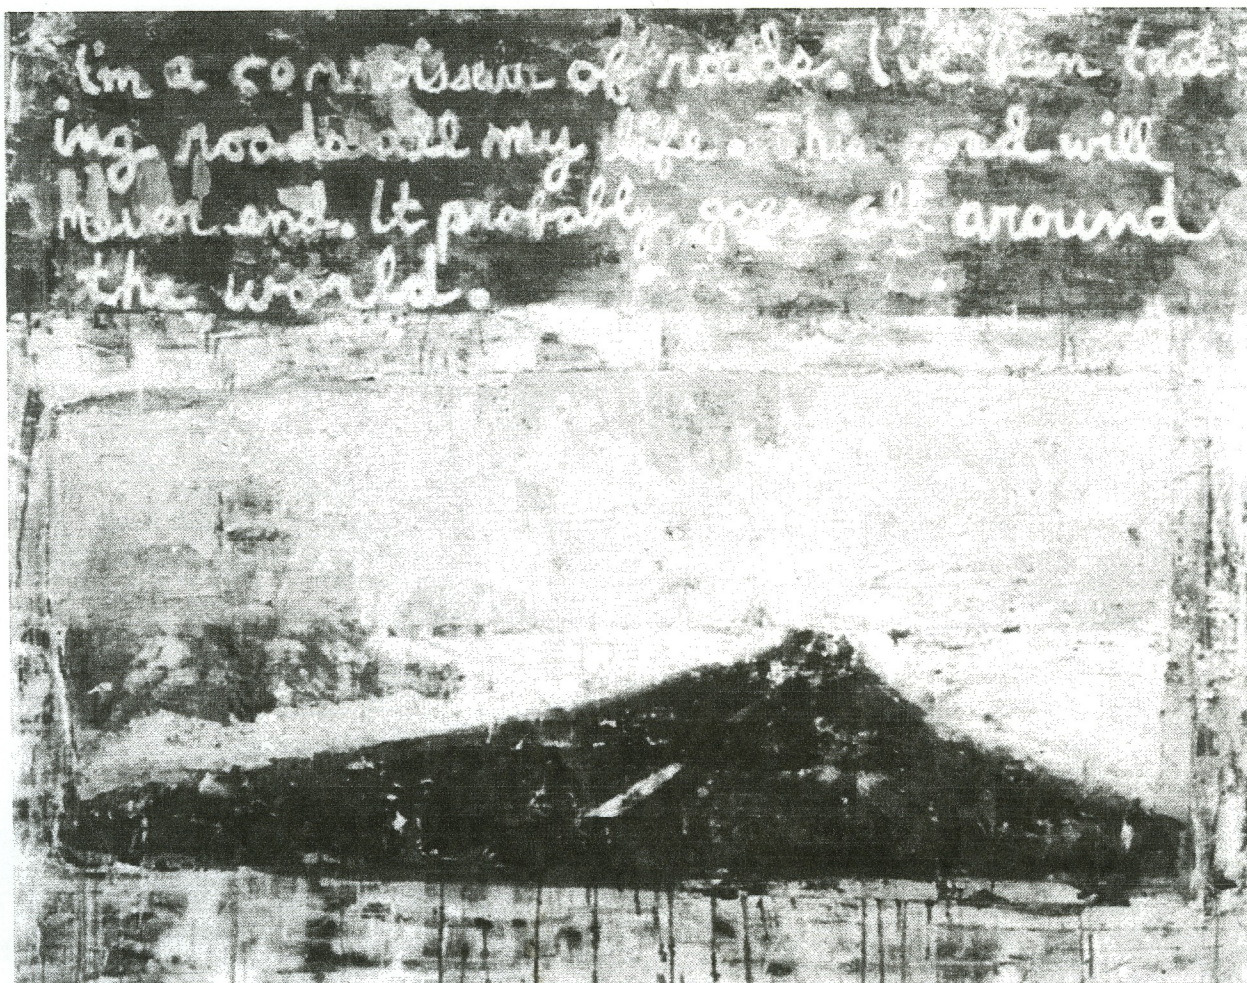 I'm a connoisseur of roads. I've been tast
ing roads all my life. This road will
never end. It probably goes all around
the world.